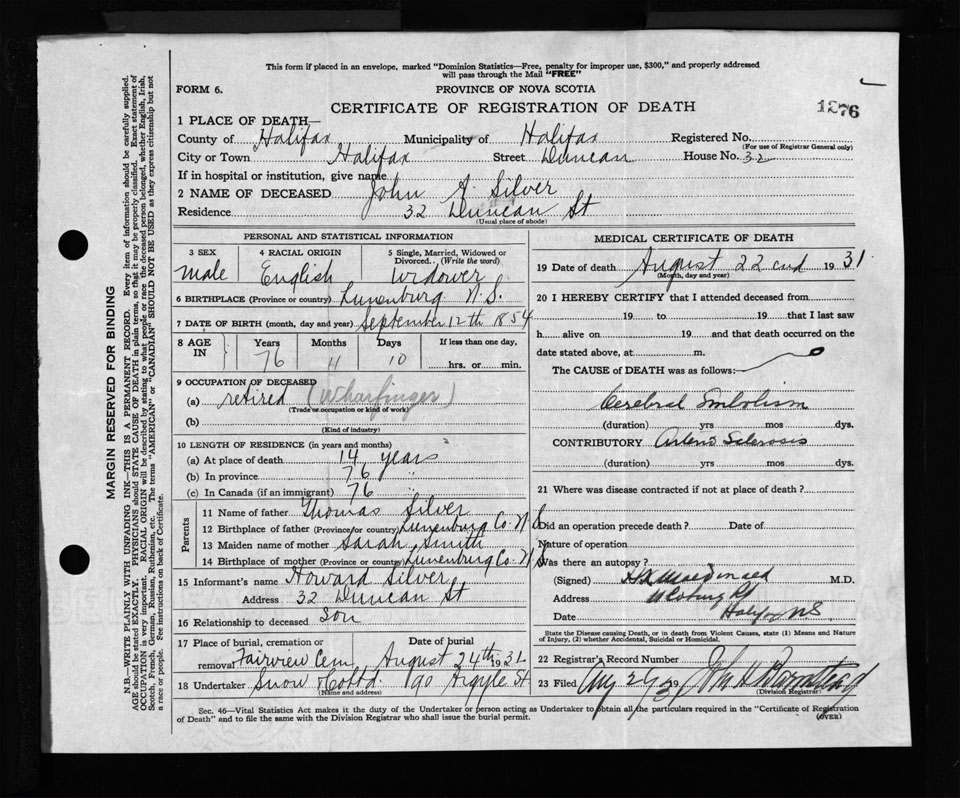 This form if placed in an envelope, marked "Dominion Statistics—Free, penalty for improper use, $300," and properly addressed
will pass through the Mail "FREE"
FORM 6. PROVINCE OF NOVA SCOTIA
CERTIFICATE OF REGISTRATION OF DEATH 1276
1 PLACE OF DEATH—
County of Halifax Municipality of Halifax Registered No.
(For use of Registrar General only)
City or Town Halifax Street Duncan House No. 32
If in hospital or institution, give name
2 NAME OF DECEASED John A. Silver
Residence 32 Duncan St
(Usual place of abode)
PERSONAL AND STATISTICAL INFORMATION
3 SEX 4 RACIAL ORIGIN 5 Single, Married, Widowed or
Divorced. (Write the word).
Male English Widower
6 BIRTHPLACE (Province or country) Lunenburg N.S.
7 DATE OF BIRTH (month, day and year) September 12th 1854
8 AGE IN Years Months Days If less than one day,
76 11 10 hrs. or min.
9 OCCUPATION OF DECEASED
(a) retired (Wharfinger)
(Trade or occupation or kind of work)
(b)
(Kind of industry)
10 LENGTH OF RESIDENCE (in years and months)
(a) At place of death 14 years
(b) In province 76 "
(c) In Canada (if an immigrant) 76 "
Parents
11 Name of father Thomas Silver
12 Birthplace of father (Province or country) Lunenburg Co. N S
13 Maiden name of mother Sarah Smith
14 Birthplace of mother (Province or country) Lunenburg Co. N S
15 Informant's name Howard Silver
Address 32 Duncan St
16 Relationship to deceased Son
17 Place of burial, cremation or Date of burial
removal Fairview Cem August 24th 1931
18 Undertaker Snow & Co Ltd. 190 Argyle St
(Name and address)
MEDICAL CERTIFICATE OF DEATH
19 Date of death August 22nd 1931
(Month, day and year)
20 I HEREBY CERTIFY that I attended deceased from
19 to 19 that I last saw
h alive on 19 and that death occurred on the
date stated above, at m.
The CAUSE of DEATH was as follows:
Cerebral Embolism
(duration) yrs mos dys.
CONTRIBUTORY Arterio Sclerosis
(duration) yrs mos dys.
21 Where was disease contracted if not at place of death?
Did an operation precede death? Date of
Nature of operation
Was there an autopsy?
(Signed) M.D.
Address
Date Halifax NS
State the Disease causing Death, or in death from Violent Causes, state (1) Means and Nature
of Injury, (2) whether Accidental, Suicidal or Homicidal.
22 Registrar's Record Number
23 Filed Aug 19 John H
(Division Registrar)
Sec. 46—Vital Statistics Act makes it the duty of the Undertaker or person acting as Undertaker to obtain all the particulars required in the "Certificate of Registration
of Death" and to file the same with the Division Registrar who shall issue the burial permit. (OVER)
MARGIN RESERVED FOR BINDING
N.B.—WRITE PLAINLY WITH UNFADING INK—THIS IS A PERMANENT RECORD. Every item of information should be carefully supplied.
AGE should be stated EXACTLY. PHYSICIANS should STATE CAUSE OF DEATH in plain terms, so that it may be properly classified. Exact statement of
OCCUPATION is very important. RACIAL ORIGIN will be described by stating to what people or race the deceased person belonged, whether English, Irish,
Scotch, French, German, Russian, Ruthenian, etc. The terms "AMERICAN" or "CANADIAN" SHOULD NOT BE USED as they express citizenship but not
a race or people. See instructions on back of Certificate.